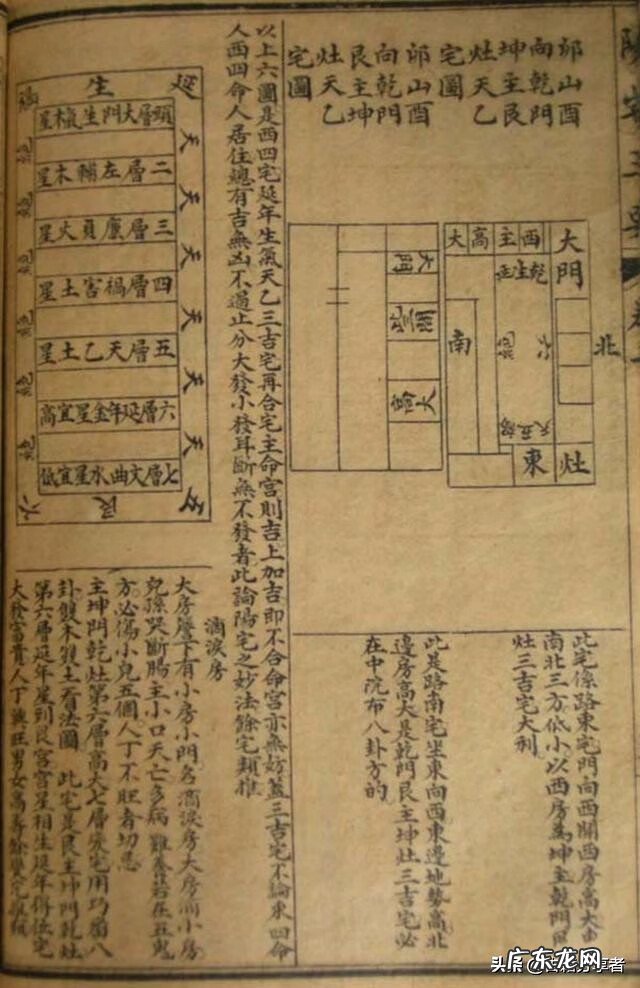 陽宅三要
卷三
邱山酉
向乾門
坤主艮
灶天乙
宅圖
邱山酉
向乾門
艮主坤
灶天乙
宅圖
大門
北
灶
西主高大
乾
生
南
東
大門
高大
此宅係路東宅門向西開西房高大東
南北三方低小以西房為坤主乾門艮
灶三吉宅大利
此是路南宅坐東向西東邊地勢高北
邊房高大是乾門艮主坤灶三吉宅必
在中院布八卦方的
以上六圖是西四宅延年生氣天乙三吉宅再合宅主命宮則吉上加吉即不合命宮亦無妨蓋三吉宅不論東四命
人西四命人居住總有吉無凶不過止分大發小發耳斷無不發者此論陽宅之妙法餘宅類推
延生禍
頭層大門生氣木星
二層左輔木星
三層廉貞火星
四層禍害土星
五層天乙土星
六層延年金星宜高
七層文曲水星宜低
天
天
天
天
天
天
絕
絕
絕
絕
絕
絕
五艮六
滴淚房
大房簷下有小房小門名滴淚房大房前小房
兒孫哭斷腸主小口夭亡多病難養若在五鬼
方必傷小兒五個人丁不旺者切忌
主坤門乾灶第六層高大七層變宅用巧番八
卦雙木雙土看法圖 此宅是艮主坤門乾灶
第六層延年星到艮宮宮星相生延年得位宅
大發富貴人丁興旺男女高壽餘變宅
头条
广东龙网